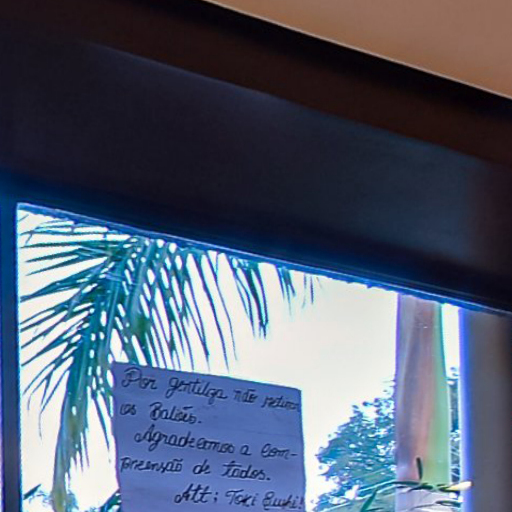 Por gentiliza não retirar
os Balões.
Agradecemos a Com-
preensão de todos.
Att: Toki Sushi!